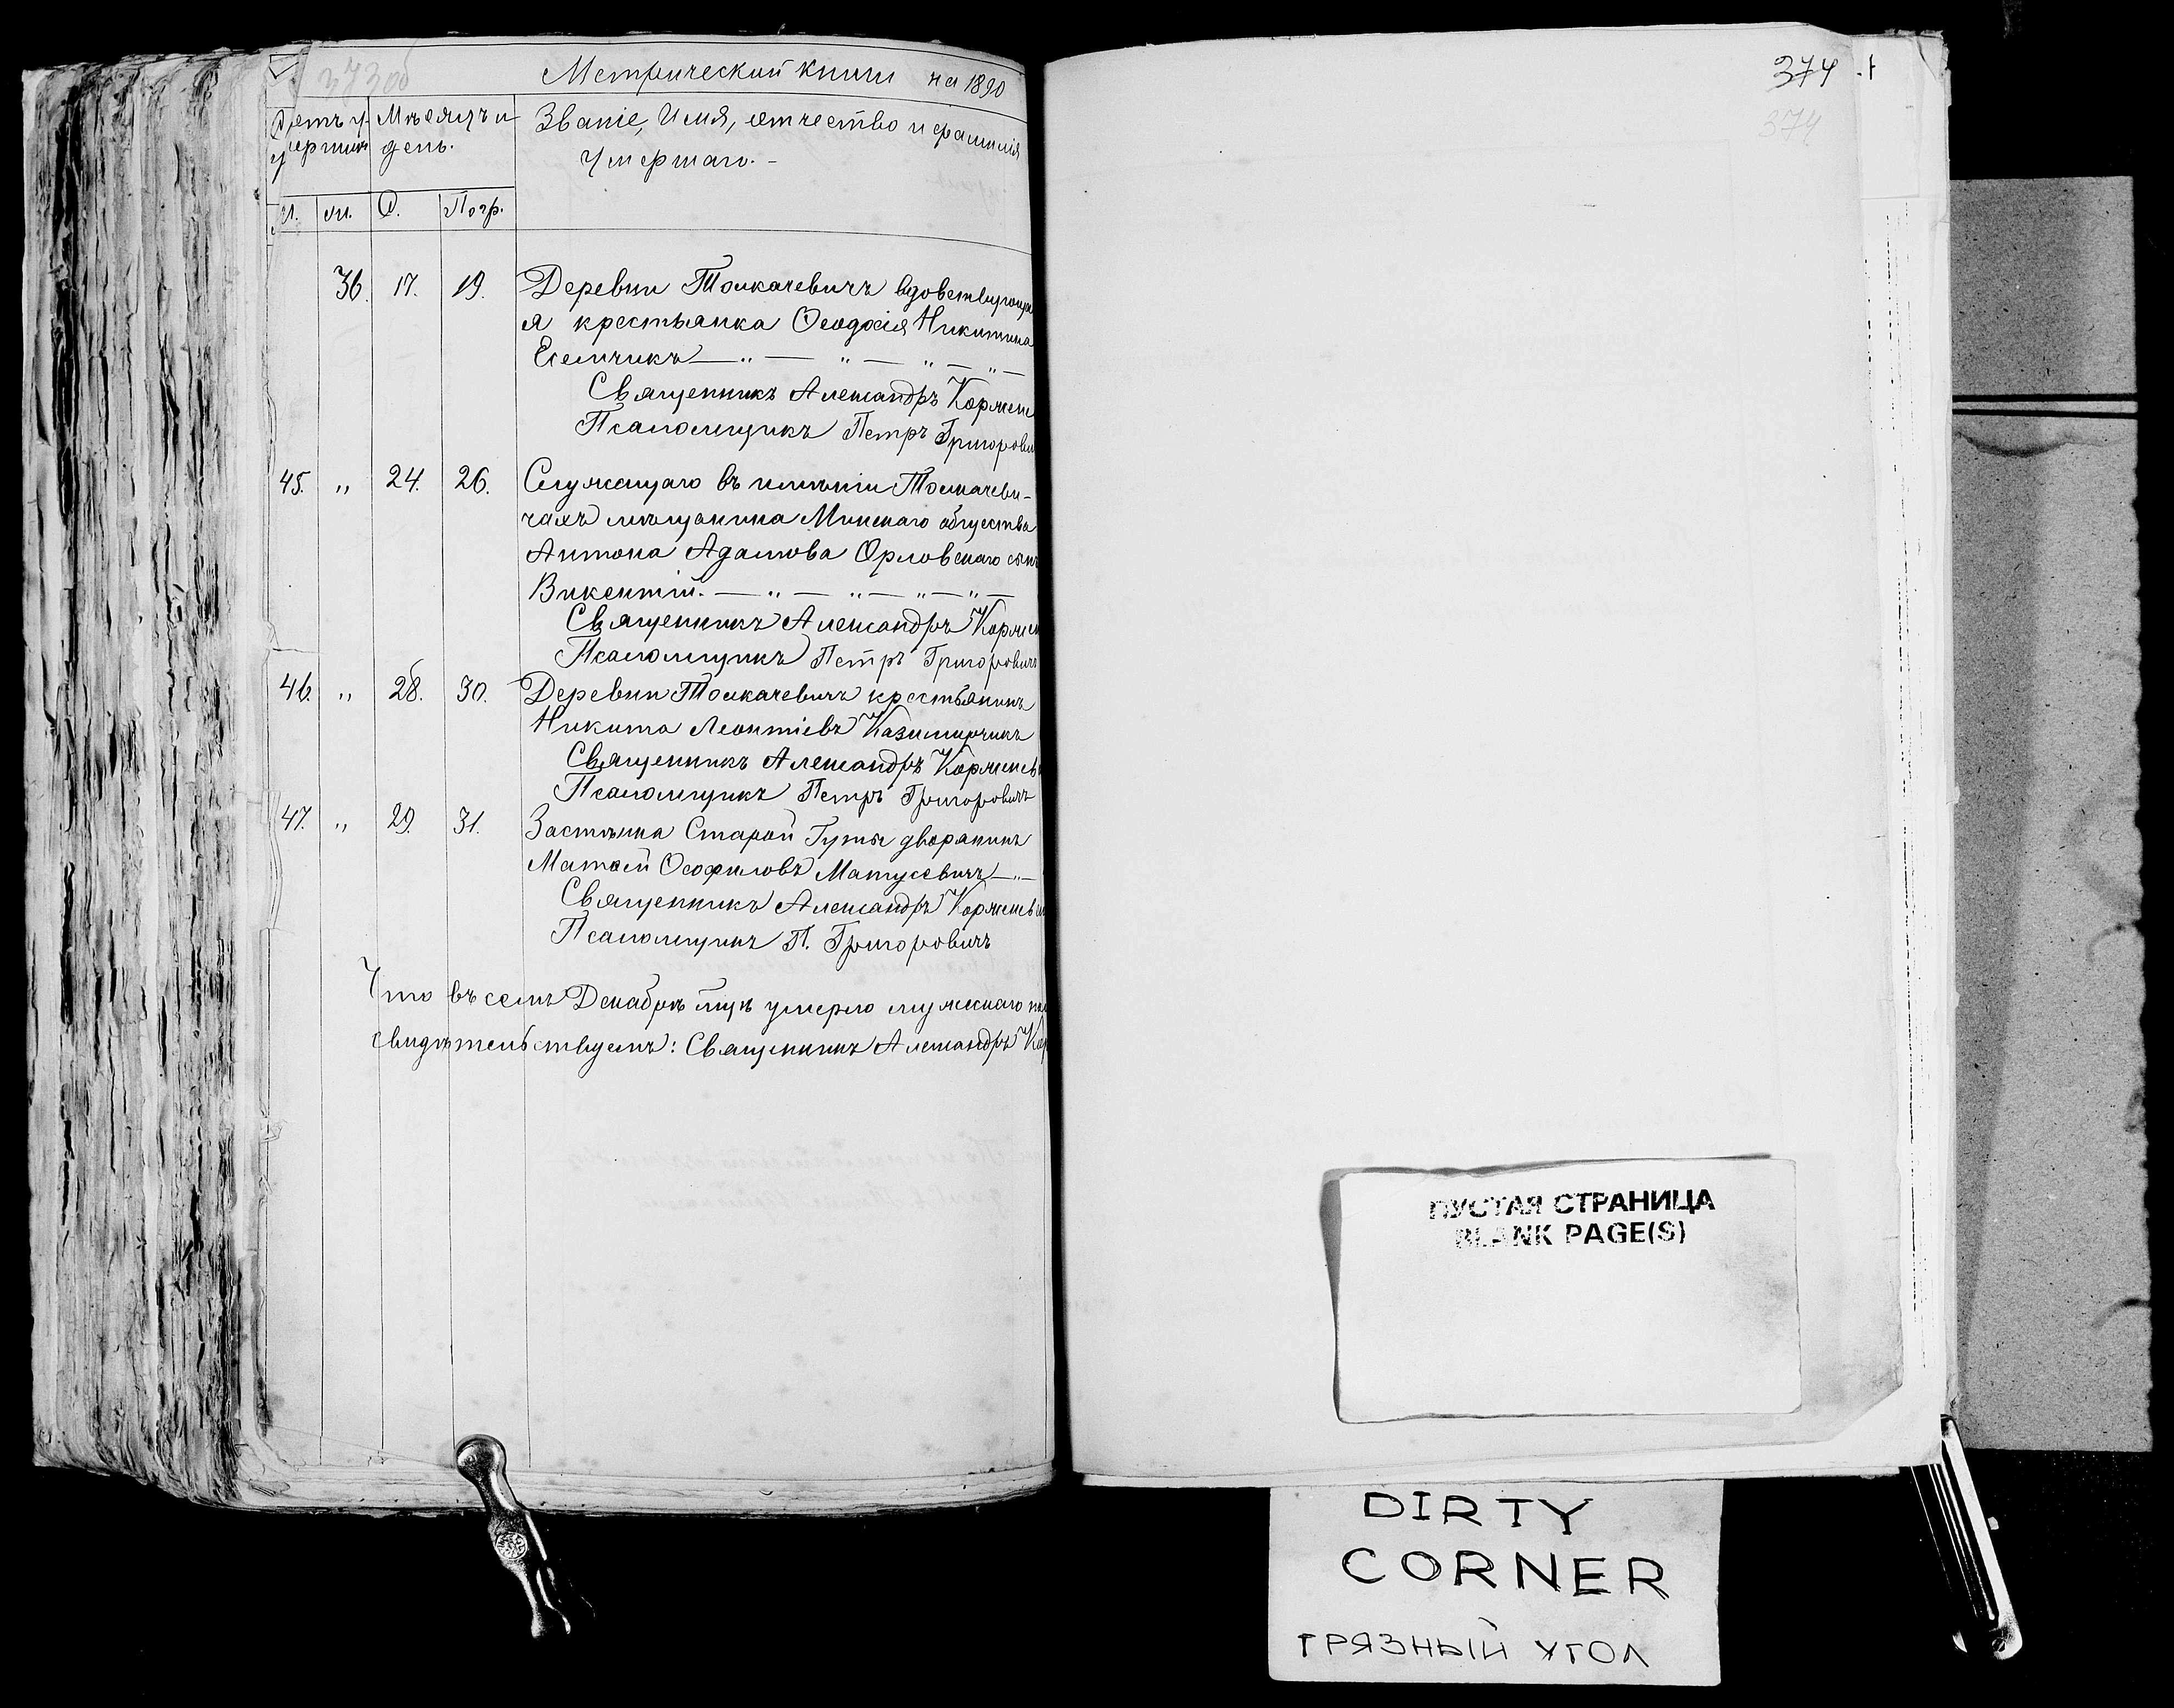 373об
Метрической книги на 1890
Счетъ у-
мершихъ
Мѣсяцъ и
день.
Званіе, Имя, отчество и фамилія
Умершаго.-
м. ж. С. Погр.
36. 17. 19. Деревни Толкачевичъ вдовствующа
я крестьянка Ѳеодосія Никитина
Есемчикъ — „ — „ — „ — „ —
Священникъ Александръ
Псаломщикъ Петръ Григорови
45. „ 24. 26. Служащаго въ имѣніи Толкачеви-
чахъ мѣщанина Минскаго общества
Антона Адамова Орловскаго сынъ
Викентій. — „ — „ — „ — „ —
Священникъ Александръ
Псаломщикъ Петръ Григоровичъ
46. „ 28. 30. Деревни Толкачевичъ крестьянинъ
Никита Леонтіевъ Казимирчикъ
Священникъ Александръ
Псаломщикъ Петръ Григоровичъ
47. „ 29. 31. Застѣнка Старой Гуты дворянинъ
Матѳей Ѳеофиловъ Матусевичъ — „ —
Священникъ Александръ
Псаломщикъ П. Григоровичъ
Что въ семъ Декабрѣ м-цѣ умерло мужескаго по
свидѣтельствуемъ: Священникъ Александръ
374
374
ПУСТАЯ СТРАНИЦА
BLANK PAGE(S)
DIRTY
CORNER
ГРЯЗНЫЙ УГОЛ